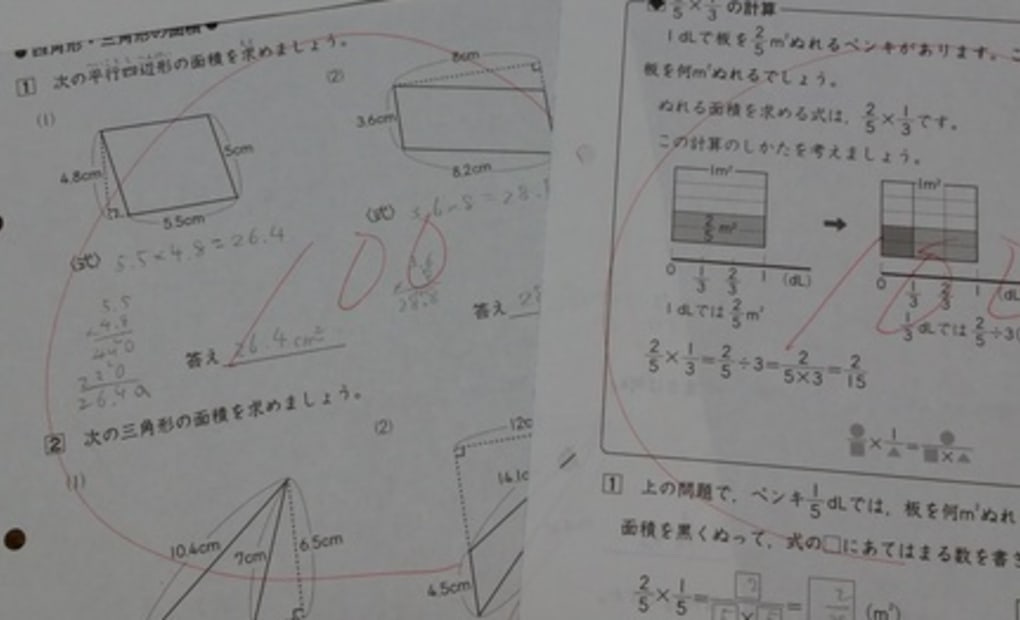 ● 四角形・三角形の面積 ●
1 次の平行四辺形の面積を求めましょう。
(1)
4.8cm
5cm
5.5cm
(式) 5.5×4.8=26.4
5.5
×4.8
440
220
26.40
答え 26.4cm²
(2)
8cm
3.6cm
8.2cm
(式) 3.6×8=28.
3.6
28.8
答え 28
2 次の三角形の面積を求めましょう。
(1)
10.4cm
7cm
6.5cm
(2)
12c
14.1c
4.5cm
2/5×1/3 の計算
1dLで板を2/5m²ぬれるペンキがあります。こ
板を何m²ぬれるでしょう。
ぬれる面積を求める式は、2/5×1/3です。
この計算のしかたを考えましょう。
1m²
2/5m²
0 1/3 2/3 1 (dL)
1dLでは2/5m²
➡
1m²
0 1/3 2/3 (dL
1/3dLでは2/5÷3(
2/5×1/3=2/5÷3=2/5×3=2/15
●/■×1/▲=●/■×▲
1 上の問題で、ペンキ1/5dLでは、板を何m²ぬれ
面積を黒くぬって、式の□にあてはまる数を書き
2/5×1/5=2/5×5=2/ (m²)
100